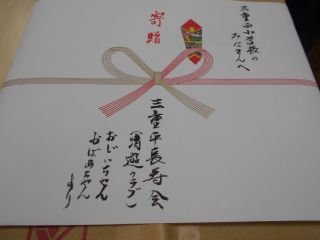 三重西小学校の
みなさんへ
寄贈
三重平長寿会
(清遊クラブ)
おじいちゃん
おばあちゃん
より